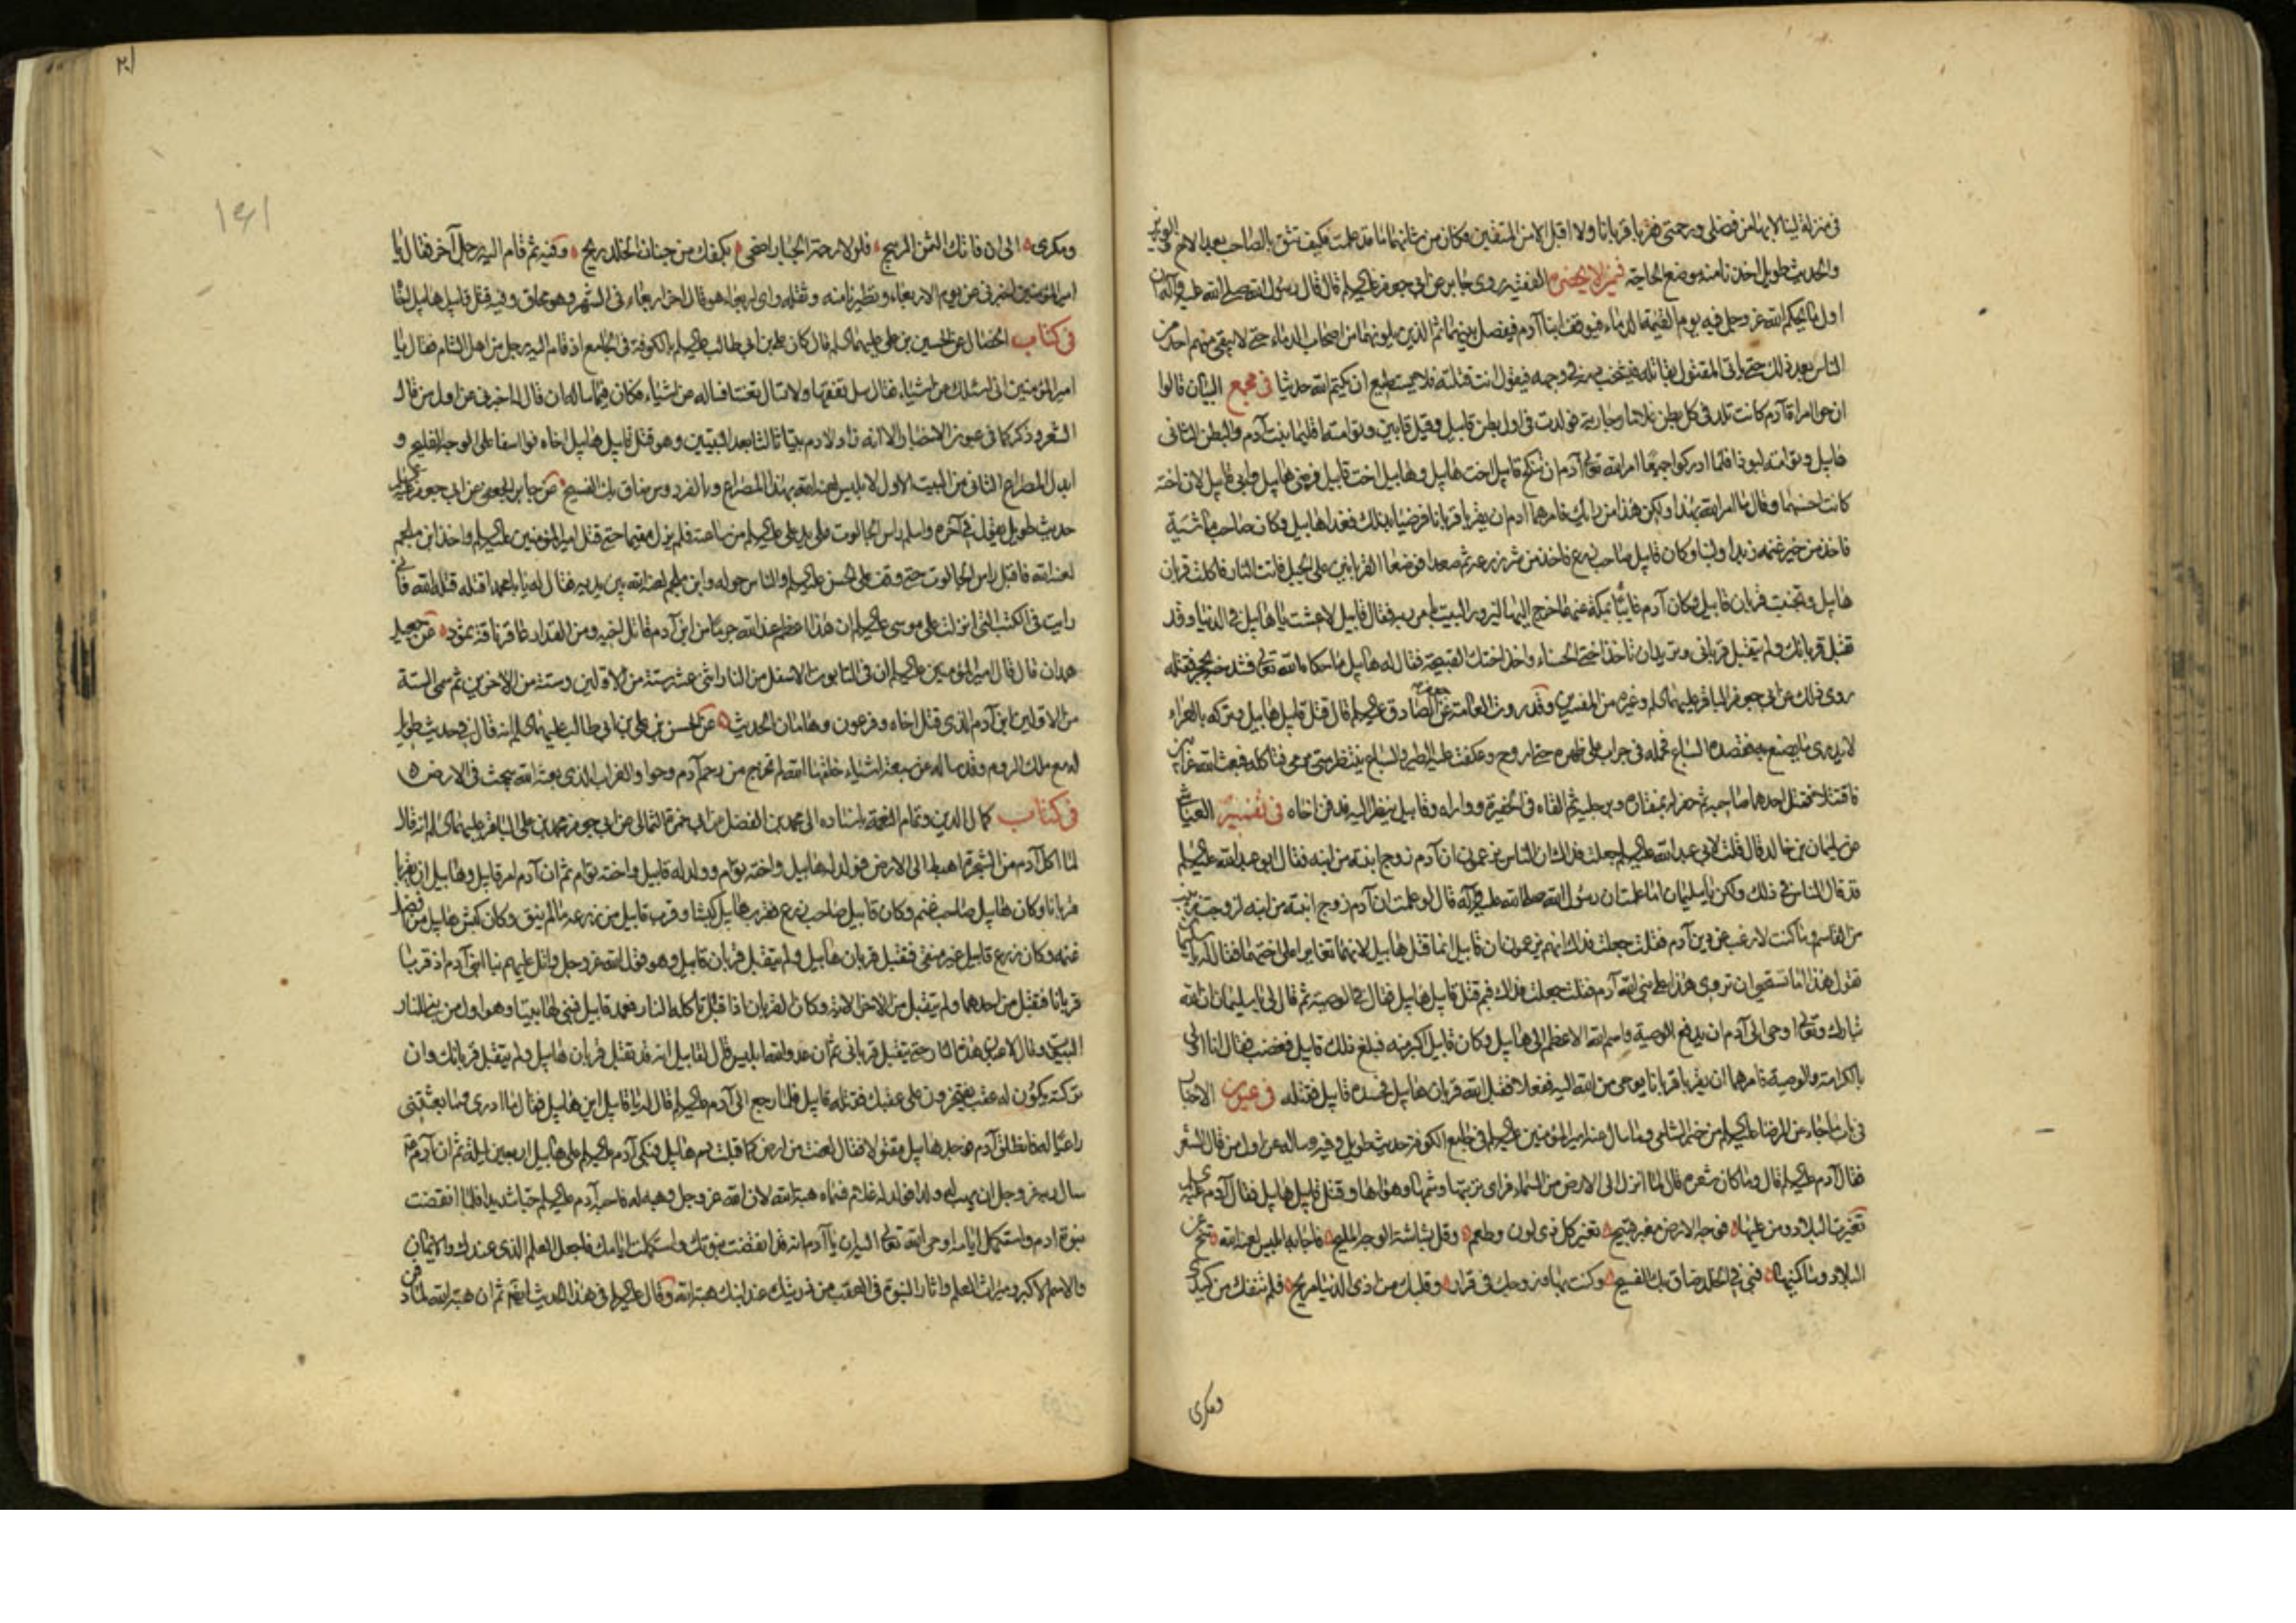 في منزلة لينالا بها من فضلي ورحمتي فقربا قربانا ولا اقبل الا من المتقين وكان من شانهما ما قد علمت فكيف تثق بالصاحب بعد الاخ
والحديث طويل اخذنا منه موضع الحاجة فيمن لا يحضره الفقيه روى جابر عن ابي جعفر عليه السلم قال قال رسول الله صلى الله عليه وآله
اول ما يحكم الله عز وجل فيه يوم القيمة الدماء فيوقف ابنا آدم فيفصل بينهما ثم الذين يلونهما من اصحاب الدماء حتى لا يبقى منهم احد من
الناس بعد ذلك حتى ياتى المقتول بقاتله فيشخب دمه في وجهه فيقول انت قتلته فلا يستطيع ان يكتم الله حديثا في مجمع البيان قالوا
ان حوا امراة آدم كانت تلد في كل بطن غلاما وجارية فولدت في اول بطن قابيل وقيل قابين وتوامته اقليما بنت آدم والبطن الثانى
هابيل وتوامته لبوذا فلما ادركوا جميعا امر الله تعالى آدم ان ينكح قابيل اخت هابيل وهابيل اخت قابيل فرضى هابيل وابى قابيل لان اخته
كانت احسنهما وقال ما امر الله بهذا ولكن هذا من رايك فامرهما ادم ان يقربا قربانا فرضيا بذلك فغدا هابيل وكان صاحب ماشية
فاخذ من خير غنمه زبدا ولبنا وكان قابيل صاحب زرع فاخذ من شر زرعه ثم صعدا فوضعا القربانين على الجبل فاتت النار فاكلت قربان
هابيل وتجنبت قربان قابيل وكان آدم غائبا بمكة عنهما خرج اليها ليزور البيت بامر ربه فقال قابيل لا عشت يا هابيل في الدنيا وقد
تقبل قربانك ولم يتقبل قرباني وتريد ان تاخذ اختى الحسناء واخذ اختك القبيحة فقال له هابيل ما حكاه الله تعالى فشدخه بحجر فقتله
روى ذلك عن ابي جعفر الباقر عليهما السلم وغيره من المفسرين وقد روت العامة عن جعفر الصادق عليه السلم قال قتل قابيل هابيل وتركه بالعراء
لا يدرى ما يصنع به فقصده السباع فحمله في جراب على ظهره حتى اروح وعكفت عليه الطير والسباع ينتظر متى يرمى فتاكله فبعث الله غرابين
فاقتتلا فقتل احدهما صاحبه ثم حفر له بمنقاره وبرجليه ثم القاه في الحفيرة وواراه وقابيل ينظر اليه فدفن اخاه في تفسير العياشي
عن سليمان بن خالد قال قلت لابي عبد الله عليه السلم جعلت فداك ان الناس يزعمون ان آدم زوج ابنته من ابنه فقال ابو عبد الله عليه السلم
قد قال الناس في ذلك ولكن يا سليمان اما علمت ان رسول الله صلى الله عليه وآله قال لو علمت ان آدم زوج ابنته من ابنه لزوجت زينب
من القاسم وما كنت لارغب عن دين آدم فقلت جعلت فداك انهم يزعمون ان قابيل انما قتل هابيل لانهما تغايرا على اختهما فقال له يا سليمان
تقول هذا اما تستحيي ان تروى هذا على نبى الله آدم فقلت جعلت فداك فبم قتل قابيل هابيل فقال في الوصية ثم قال لي يا سليمان ان الله
تبارك وتعالى اوحى الى آدم ان يدفع الوصية واسم الله الاعظم الى هابيل وكان قابيل اكبر منه فبلغ ذلك قابيل فغضب فقال انا اولى
بالكرامة والوصية فامرهما ان يقربا قربانا بوحى من الله اليه ففعلا فقبل الله قربان هابيل فحسده قابيل فقتله في عيون الاخبار
في باب ما جاء عن الرضا عليه السلم من خبر الشامي وما سال عنه امير المؤمنين عليه السلم في جامع الكوفة حديث طويل وفيه وساله عن اول من قال الشعر
فقال آدم عليه السلم قال وما كان شعره قال لما انزل الى الارض من السماء فراى تربتها وسعتها وهواها وقتل قابيل هابيل فقال آدم عليه السلم
تغيرت البلاد ومن عليها فوجه الارض مغبر قبيح تغير كل ذى لون وطعم وقل بشاشة الوجه المليح فاجابه ابليس لعنه الله تنح عن
البلاد وساكنيها فبي في الخلد ضاق بك الفسيح وكنت بها وزوجك في قرار وقلبك من اذى الدنيا مريح فلم تنفك من كيدى
ومكرى
٢٠١
١٤١
ومكرى الى ان فاتك الثمن الربيح فلولا رحمة الجبار اضحى بكفك من جنان الخلد ريح وفيه ثم قام اليه رجل آخر فقال يا
امير المؤمنين اخبرني عن يوم الاربعاء وتطيرنا منه وثقله واى اربعاء هو قال اخر اربعاء في الشهر وهو محاق وفيه قتل قابيل هابيل اخاه
في كتاب الخصال عن الحسين بن علي عليهما السلم قال كان علي بن ابي طالب عليه السلم بالكوفة في الجامع اذ قام اليه رجل من اهل الشام فقال يا
امير المؤمنين انى اسئلك عن اشياء فقال سل تفقها ولا تسال تعنتا فساله عن اشياء فكان فيما ساله ان قال له اخبرني عن اول من قال
الشعر وذكر كما في عيون الاخبار الا انه زاد لادم بيتا ثالثا بعد البيتين وهو قتل قابيل هابيل اخاه فوا اسفا على الوجه المليح و
ابدل المصراع الثاني من البيت الاول لابليس لعنه الله بهذا المصراع وبالفردوس ضاق بك الفسيح عن جابر الجعفي عن ابي جعفر عليه السلم
حديث طويل يقول في آخره واسلم راس الجالوت على يد علي عليه السلم من ساعته فلم يزل مقيما حتى قتل امير المؤمنين عليه السلم واخذ ابن ملجم
لعنه الله فاقبل راس الجالوت حتى وقف على الحسن عليه السلم والناس حوله وابن ملجم لعنه الله بين يديه فقال له يا با محمد اقتله قتله الله فانى
رايت في الكتب التى انزلت على موسى عليه السلم ان هذا اعظم عند الله جرما من ابن آدم قاتل اخيه ومن القدار عاقر ناقة ثمود عن جعيد
همدان قال قال امير المؤمنين عليه السلم ان في التابوت الاسفل من النار اثنى عشر ستة من الاولين وستة من الاخرين ثم سمى الستة
من الاولين ابن آدم الذى قتل اخاه وفرعون وهامان الحديث عن الحسن بن علي بن ابي طالب عليهما السلم انه قال في حديث طويل
له مع ملك الروم وقد ساله عن سبعة اشياء خلقها الله لم تخرج من رحم آدم وحوا والغراب الذى بعثه الله يبحث في الارض
في كتاب كمال الدين وتمام النعمة باسناده الى محمد بن الفضل عن ابي حمزة الثمالي عن ابي جعفر محمد بن علي الباقر عليهما السلم انه قال
لما اكل آدم من الشجرة اهبط الى الارض فولد له هابيل واخته توام وولد له قابيل واخته توام ثم ان آدم امر قابيل وهابيل ان يقربا
قربانا وكان هابيل صاحب غنم وكان قابيل صاحب زرع فقرب هابيل كبشا وقرب قابيل من زرعه ما لم ينق وكان كبش هابيل من افضل
غنمه وكان زرع قابيل غير منقى فتقبل قربان هابيل ولم يتقبل قربان قابيل وهو قول الله عز وجل واتل عليهم نبا ابنى آدم اذ قربا
قربانا فتقبل من احدهما ولم يتقبل من الاخر الاية وكان القربان اذا قبل تاكله النار فعمد قابيل فبنى لها بيتا وهو اول من بنى للنار
البيوت وقال لاعبدن هذه النار حتى يتقبل قرباني ثم ان عدو الله ابليس قال لقابيل انه قد تقبل قربان هابيل ولم يتقبل قربانك وان
تركته يكون له عقب يفتخرون على عقبك فقتله قابيل فلما رجع الى آدم عليه السلم قال له يا قابيل اين هابيل فقال ما ادرى وما بعثتنى
راعيا له فانطلق آدم فوجد هابيل مقتولا فقال لعنت من ارض كما قبلت دم هابيل فبكى آدم عليه السلم على هابيل اربعين ليلة ثم ان آدم
سال ربه عز وجل ان يهب له ولدا فولد له غلام فسماه هبة الله لان الله عز وجل وهبه له فاحبه آدم عليه السلم حبا شديدا فلما انقضت
نبوة ادم واستكمل ايامه اوحى الله تعالى اليه ان يا آدم انه قد انقضت نبوتك واستكملت ايامك فاجعل العلم الذى عندك والايمان
والاسم الاكبر وميراث العلم واثار النبوة في العقب من ذريتك عند ابنك هبة الله وقال عليه السلم في هذا الحديث ايضا ثم ان هبة الله لما دفن